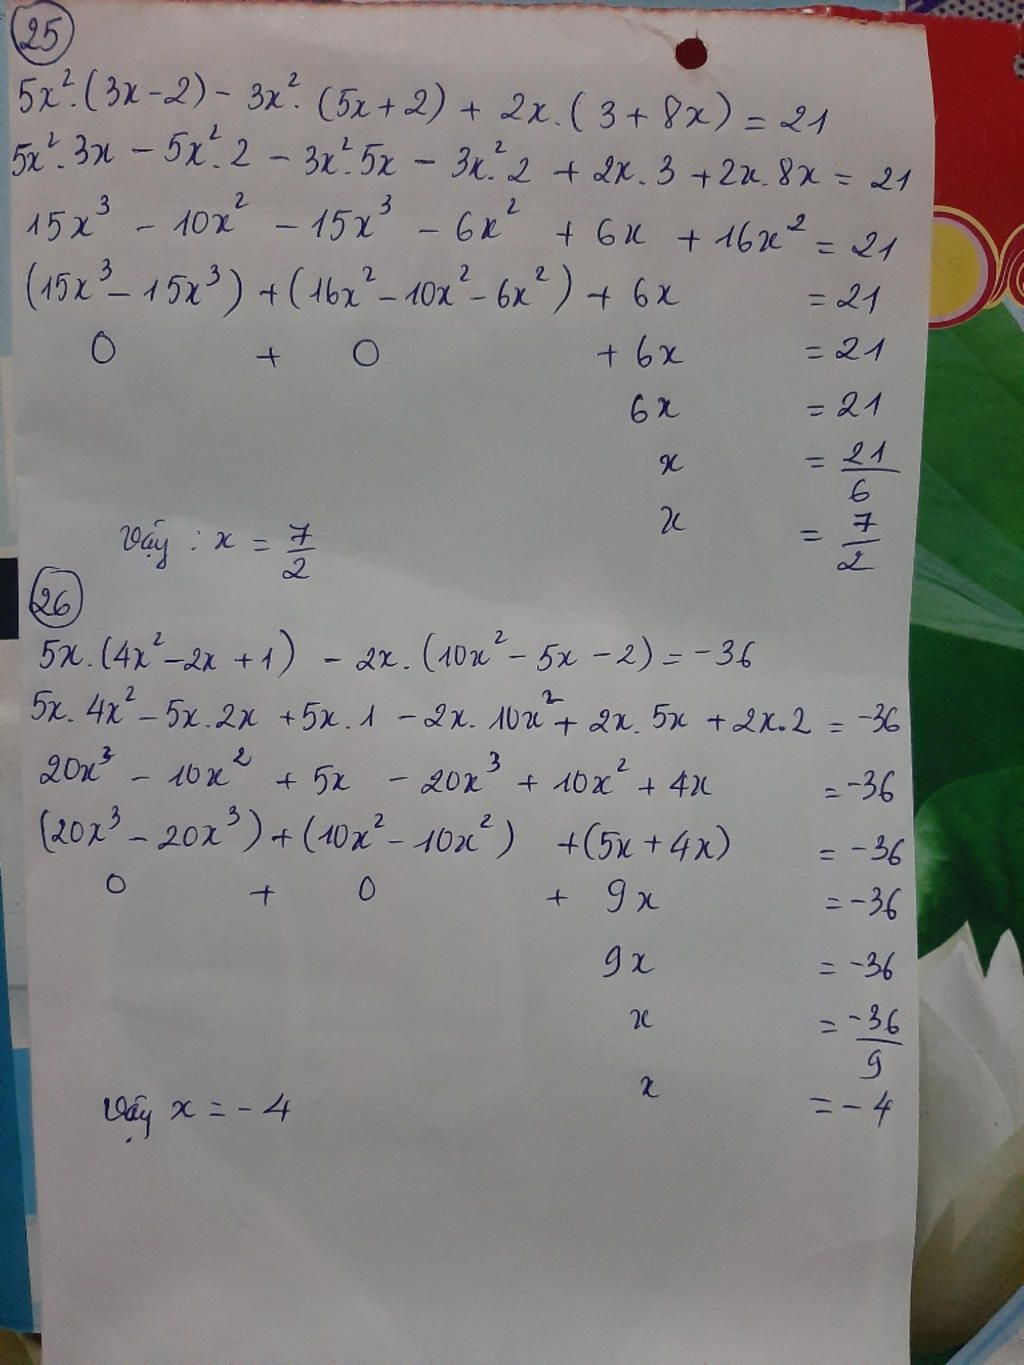 25
5x².(3x-2) - 3x².(5x+2) + 2x.(3+8x) = 21
5x².3x - 5x².2 - 3x².5x - 3x².2 + 2x.3 + 2x.8x = 21
15x³ - 10x² - 15x³ - 6x² + 6x + 16x² = 21
(15x³ - 15x³) + (16x² - 10x² - 6x²) + 6x = 21
0 + 0 + 6x = 21
6x = 21
x = 21/6
x = 7/2
Vậy : x = 7/2
26
5x.(4x² - 2x + 1) - 2x.(10x² - 5x - 2) = -36
5x.4x² - 5x.2x + 5x.1 - 2x.10x² + 2x.5x + 2x.2 = -36
20x³ - 10x² + 5x - 20x³ + 10x² + 4x = -36
(20x³ - 20x³) + (10x² - 10x²) + (5x + 4x) = -36
0 + 0 + 9x = -36
9x = -36
x = -36/9
x = -4
Vậy x = -4